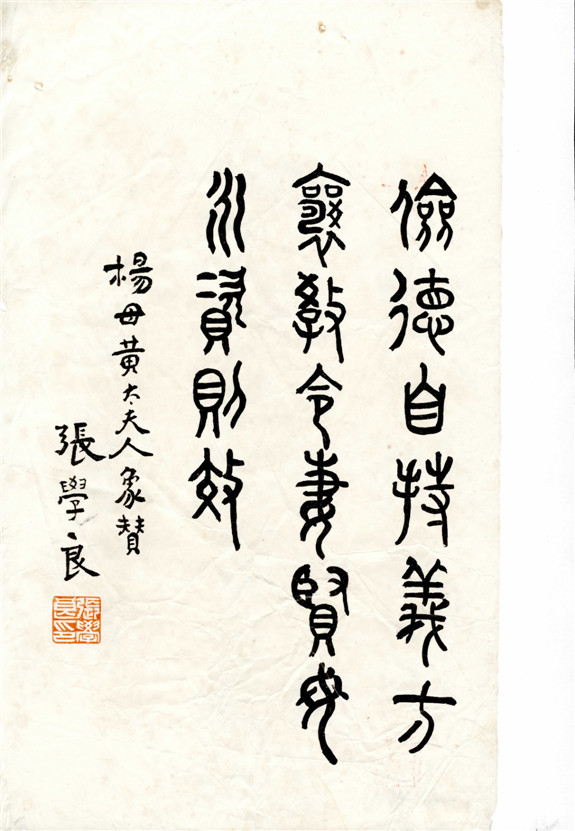 儉德自持義方
襄教令妻賢母
永資則效
楊母黃太夫人象賛
張學良
張學良印